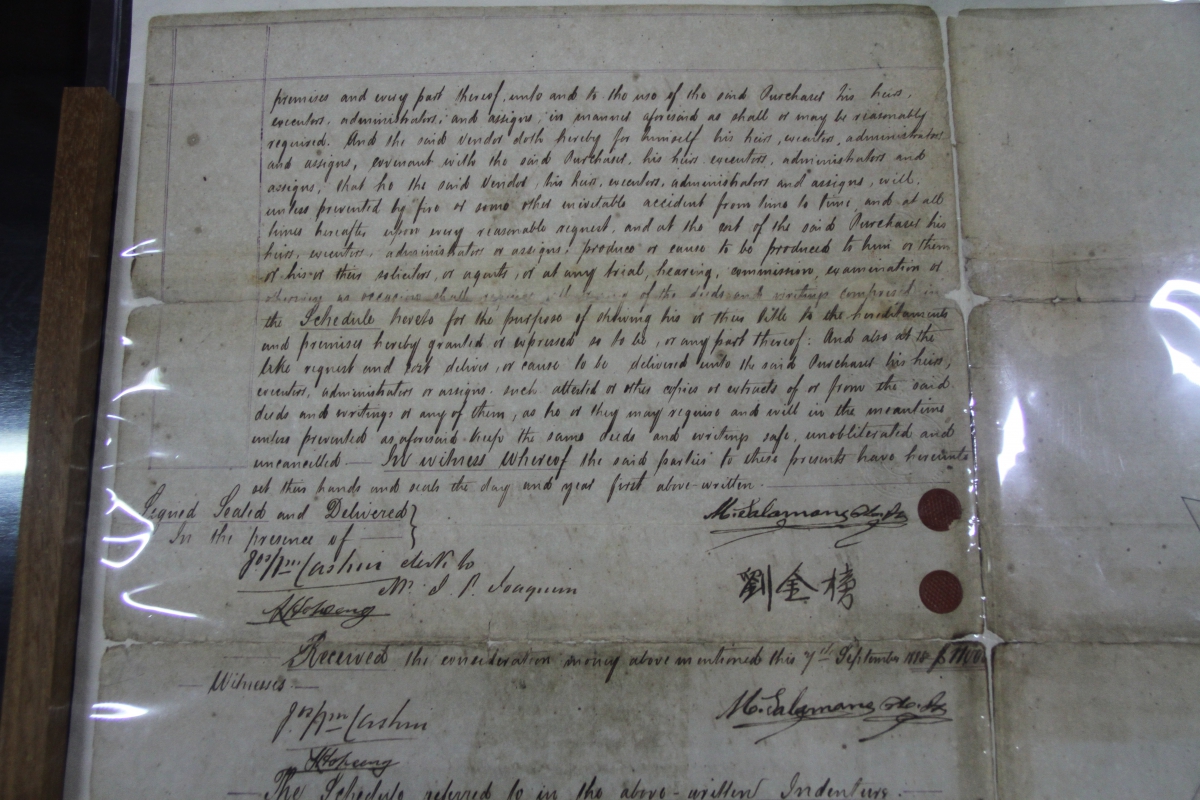 premises and every part thereof, unto and to the use of the said Purchaser his heirs,
executors, administrators, and assigns, in manner aforesaid as shall or may be reasonably
required. And the said Vendor doth hereby for himself his heirs, executors, administrators
and assigns, covenant with the said Purchaser, his heirs executors, administrators and
assigns, that he the said Vendor, his heirs, executors, administrators and assigns, will,
unless prevented by fire or some other inevitable accident from time to time and at all
times hereafter upon every reasonable request, and at the cost of the said Purchaser his
heirs, executors, administrators or assigns, produce or cause to be produced to him or them
or his or their solicitors, or agents, or at any trial, hearing, commission, examination or
otherwise as occasion shall require all of the deeds and writings comprised in
the Schedule hereto for the purpose of shewing his or their title to the hereditaments
and premises hereby granted or expressed so to be, or any part thereof: And also at the
like request and cost deliver, or cause to be delivered unto the said Purchaser his heirs,
executors, administrators or assigns such attested or other copies or extracts of or from the said
deeds and writings or any of them, as he or they may require and will in the meantime
unless prevented as aforesaid keep the same deeds and writings safe, unobliterated and
uncancelled — In witness whereof the said parties to these presents have hereunto
set their hands and seals the day and year first above-written.
Signed Sealed and Delivered }
In the presence of
Cashin clerk to
Mr. J. P. Joaquim
劉金榜
Received the consideration money above mentioned this 7th September
Witnesses
Cashin
The Schedule referred to in the above-written Indenture.